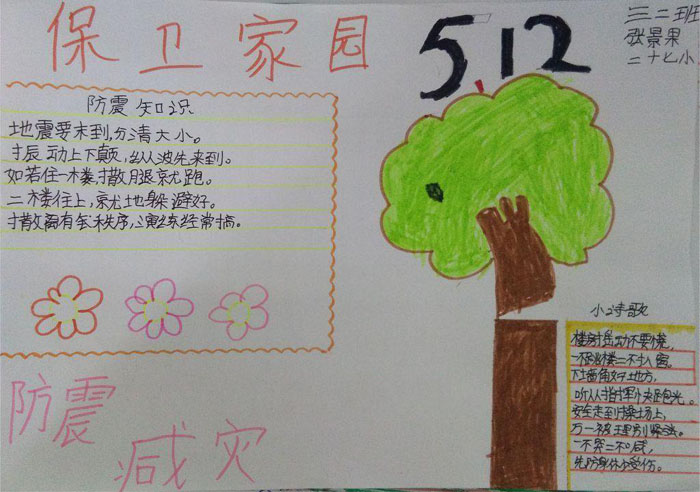 保卫家园 512
三二班
张景果
二十七小
防震知识
地震要未到,分清大小。
振动上下颠,纵波先来到。
如若住一楼,撒腿就跑。
二楼往上,就地躲避好。
撒离有秩序,演练经常搞。
小诗歌
楼房摇动不要慌,
跳楼二不窗。
墙角好地方,
听从指挥
安全走到操场上,
万一被埋别
一不哭二不喊,
先防身体不受伤。
防震
减灾